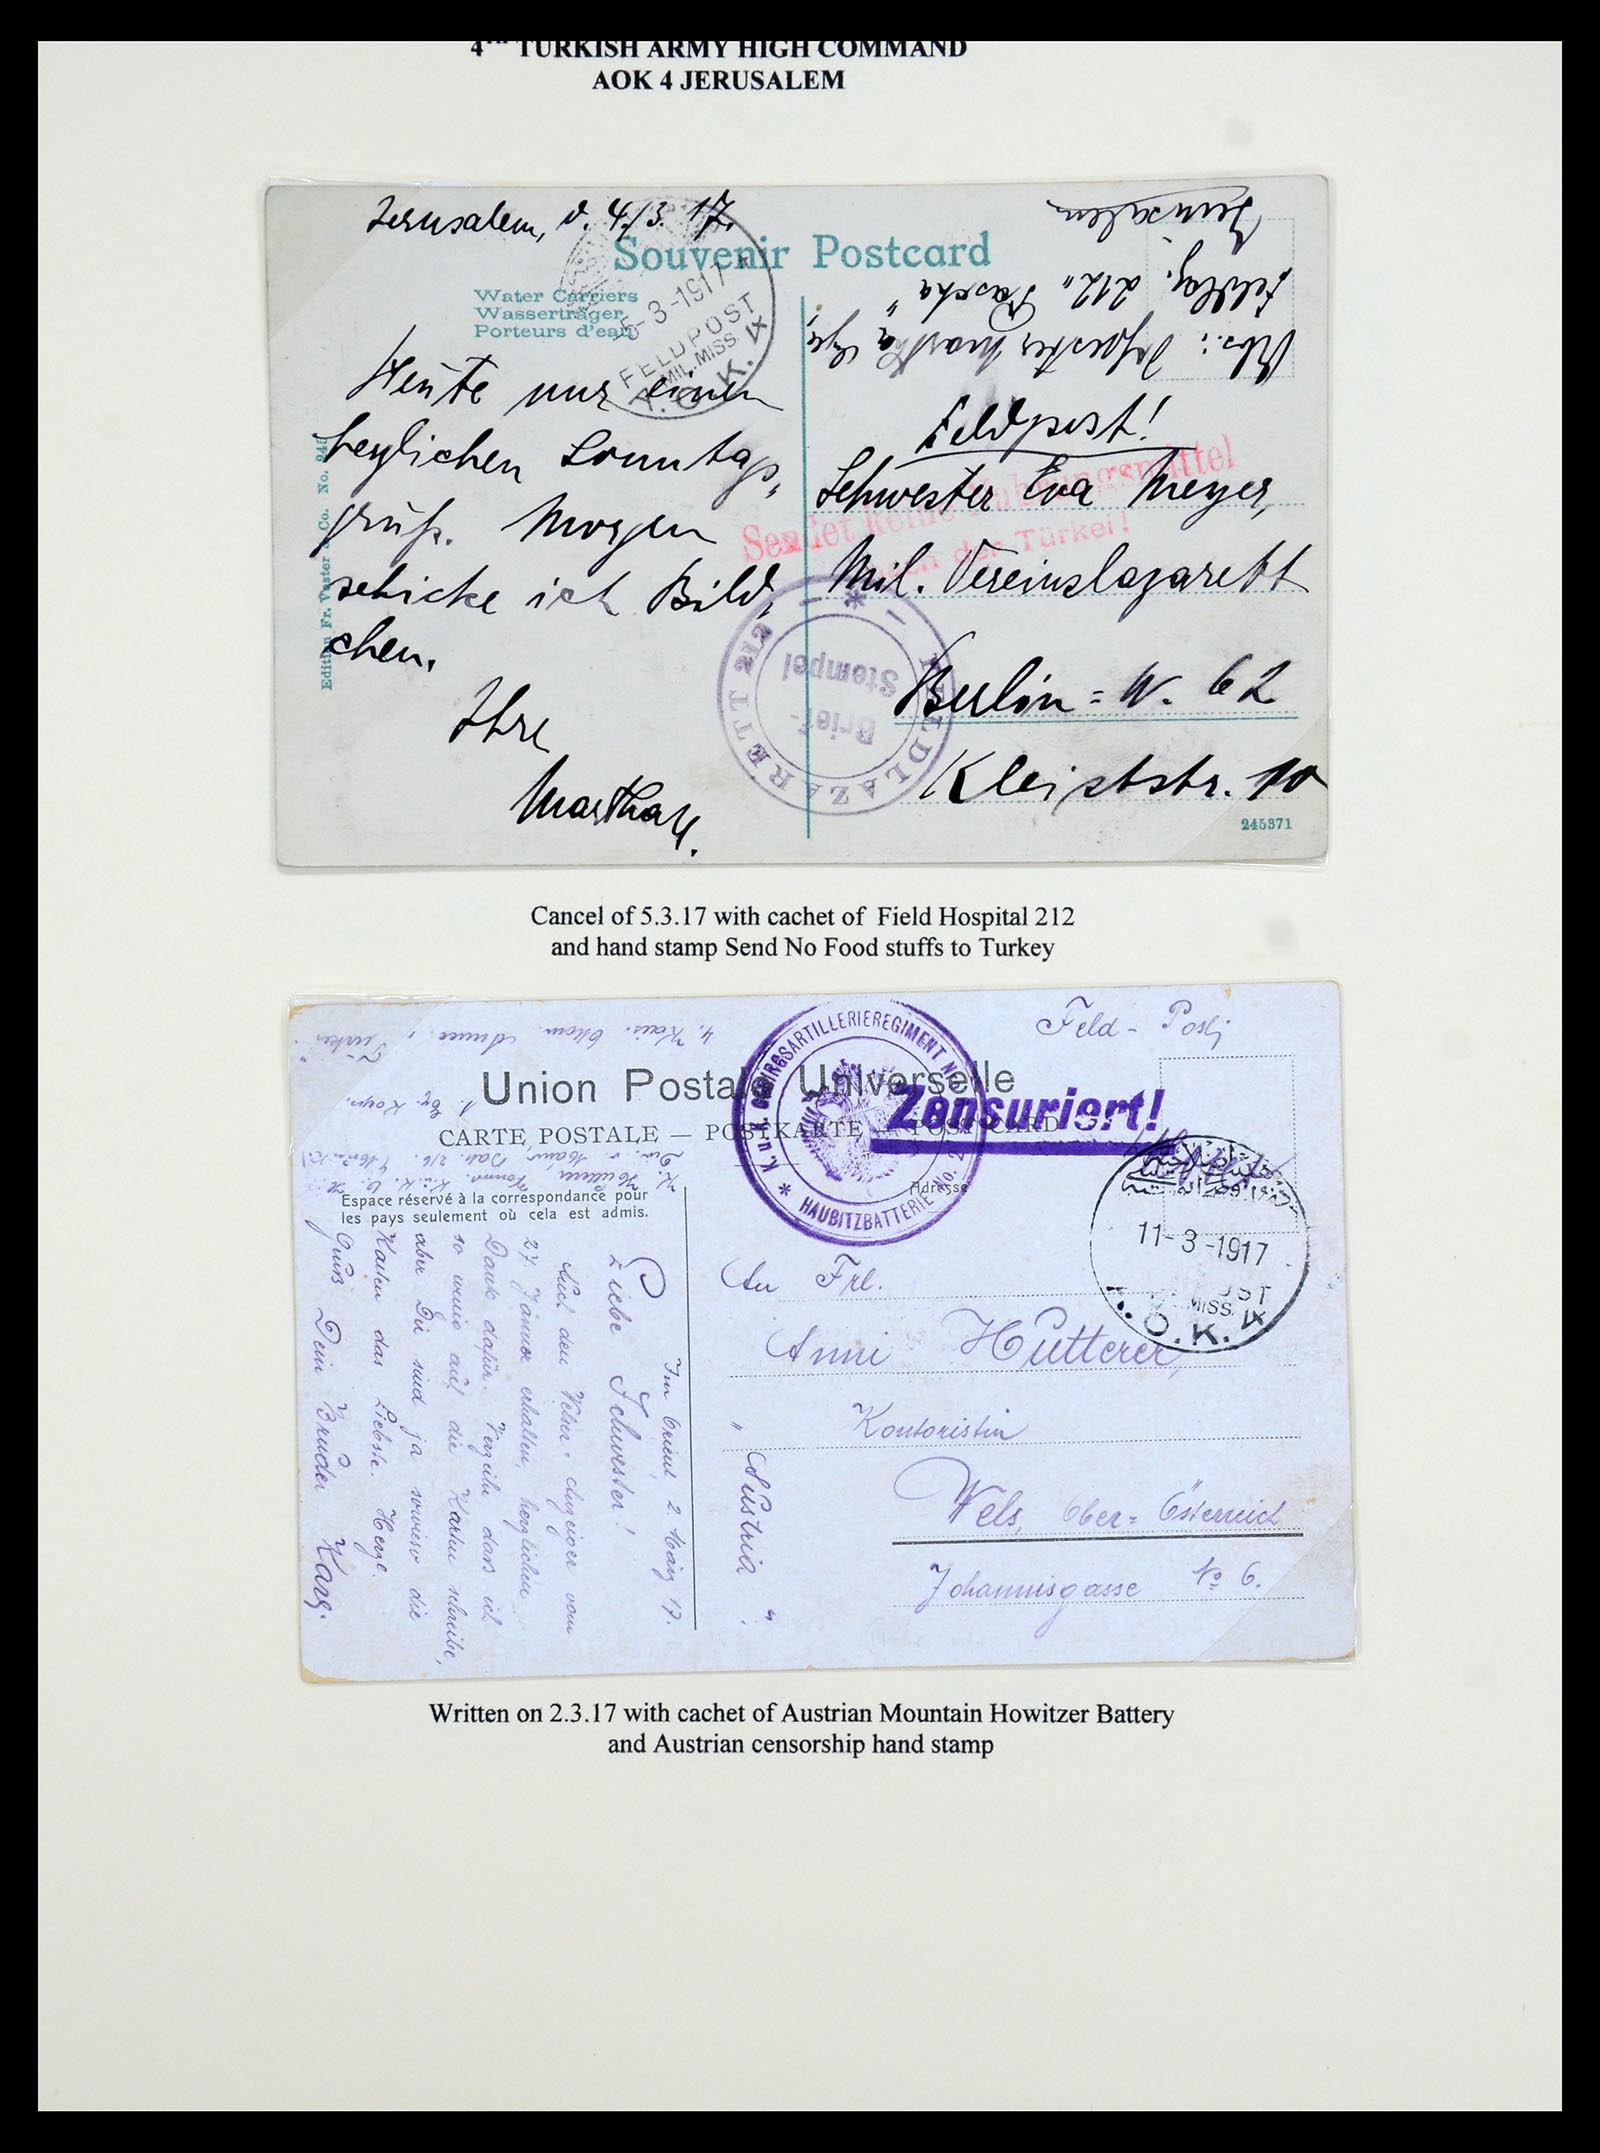 4TH TURKISH ARMY HIGH COMMAND
AOK 4 JERUSALEM
Jerusalem, d. 4./3. 17.
Souvenir Postcard
Water Carriers
Wasserträger
Porteurs d'eau
5-3-1917
FELDPOST
MIL.MISS.
A.O.K. IV
Edition Fr. Vester & Co. No. 245
Heute nur einen
herzlichen Sonntags-
gruß. Morgen
schicke ich Bild-
chen.
Ihre
Martha
Jerusalem
Feldlaz. 212 "Pascha"
Abs.: Schwester Martha
Feldpost!
Sendet keine Nahrungsmittel
nach der Türkei!
Schwester Eva Meyer,
Mil. Vereinslazarett
Berlin = W. 62
Kleiststr. 10
FELDLAZARETT 212
Brief-
Stempel
245371
Cancel of 5.3.17 with cachet of Field Hospital 212
and hand stamp Send No Food stuffs to Turkey
Feld - Post
4. Kais. Ottom. Armee
Union Postale Universelle
CARTE POSTALE — POSTKARTE — POST CARD
K.u.K. GEBIRGSARTILLERIEREGIMENT No.
HAUBITZBATTERIE No. 2
Zensuriert!
Adresse
Espace réservé à la correspondance pour
les pays seulement où cela est admis.
11-3-1917
MISS.
A.O.K. IV
Im Orient, 2. März 17.
Liebe Schwester!
Auch den Welser-Anzeiger vom
27. Jänner erhalten, herzlichen
Dank dafür. Verzeihe dass ich
so wenig auf die Karten schreibe,
aber Dir sind ja sowieso die
Karten das Liebste. Herze.
Grüß Dein Bruder Karg.
An Frl.
Anni Hutterer,
Kontoristin
Wels, Ober-Österreich
Johannisgasse No 6.
"Austria"
Written on 2.3.17 with cachet of Austrian Mountain Howitzer Battery
and Austrian censorship hand stamp